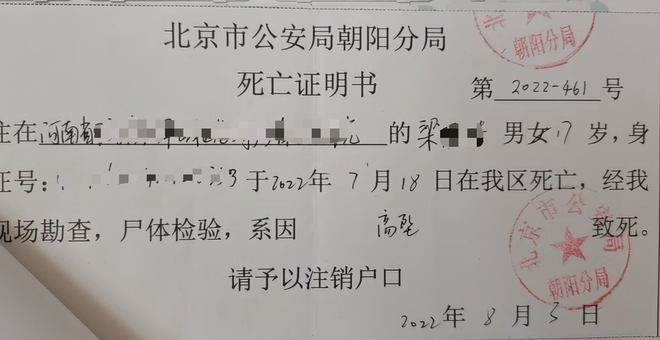 北京市公安局朝阳分局
死亡证明书
第 2022-461 号
住在河南省 的梁 男女17岁，身
证号： 3于2022年7月18日在我区死亡，经我
现场勘查，尸体检验，系因 高坠 致死。
请予以注销户口
2022年8月3日
朝阳分局
北京市公安局
朝阳分局